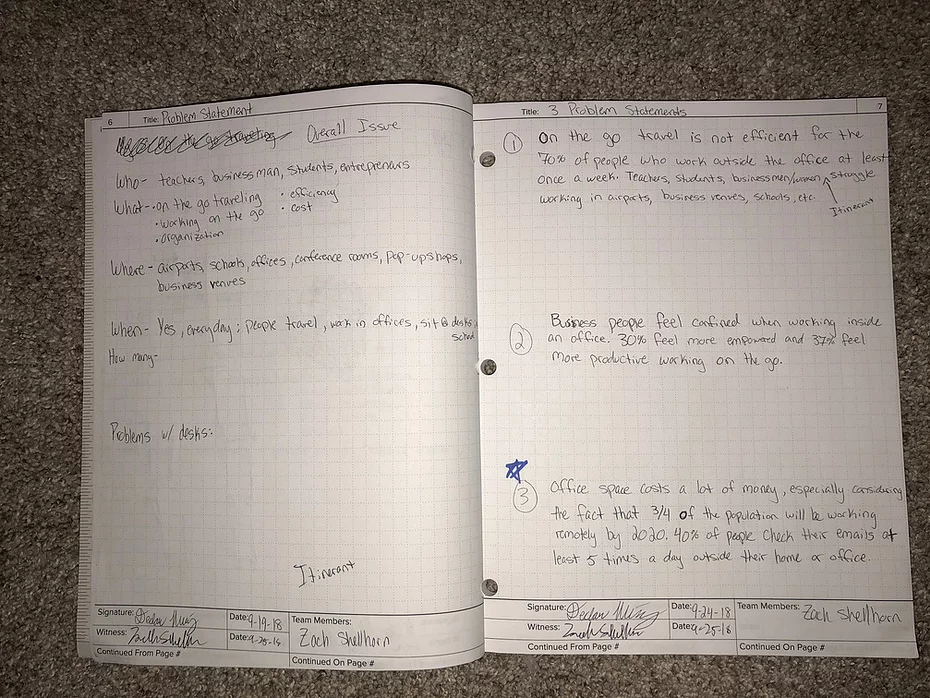 6 Title: Problem Statement
Overall Issue
Who- teachers, business man, students, entreprenars
What- • on the go traveling • efficiency
• working on the go • cost
• organization
Where- airports, schools, offices, conference rooms, pop-up shops,
business venues
When- Yes, everyday; people travel, work in offices, sit @ desks,
school
How many-
Problems w/ desks:
Itinerant
Signature: Date: 9-19-18 Team Members:
Witness: Date: 9-25-18 Zach Shellhorn
Continued From Page # Continued On Page #
Title: 3 Problem Statements 7
1 On the go travel is not efficient for the
70% of people who work outside the office at least
once a week. Teachers, students, businessmen/women, struggle
working in airports, business venues, schools, etc.
Itinerant
2 Business people feel confined when working inside
an office. 30% feel more empowered and 37% feel
more productive working on the go.
3 Office space costs a lot of money, especially considering
the fact that 3/4 of the population will be working
remotely by 2020. 40% of people check their emails at
least 5 times a day outside their home or office.
Signature: Date: 9-24-18 Team Members: Zach Shellhorn
Witness: Date: 9-25-18
Continued From Page # Continued On Page #